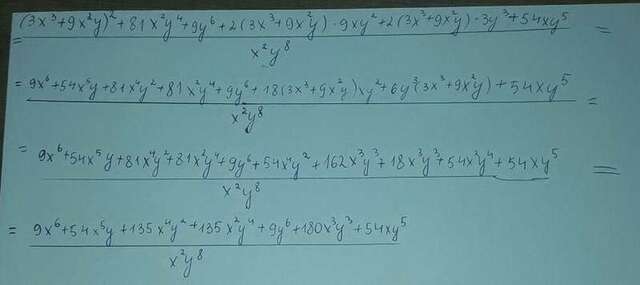 = \frac{(3x^3+9x^2y)^2+81x^2y^4+9y^6+2(3x^3+9x^2y)\cdot 9xy^2+2(3x^3+9x^2y)\cdot 3y^3+54xy^5}{x^2y^8} =
= \frac{9x^6+54x^5y+81x^4y^2+81x^2y^4+9y^6+18(3x^3+9x^2y)xy^2+6y^3(3x^3+9x^2y)+54xy^5}{x^2y^8} =
= \frac{9x^6+54x^5y+81x^4y^2+81x^2y^4+9y^6+54x^4y^2+162x^3y^3+18x^3y^3+54x^2y^4+54xy^5}{x^2y^8} =
= \frac{9x^6+54x^5y+135x^4y^2+135x^2y^4+9y^6+180x^3y^3+54xy^5}{x^2y^8}